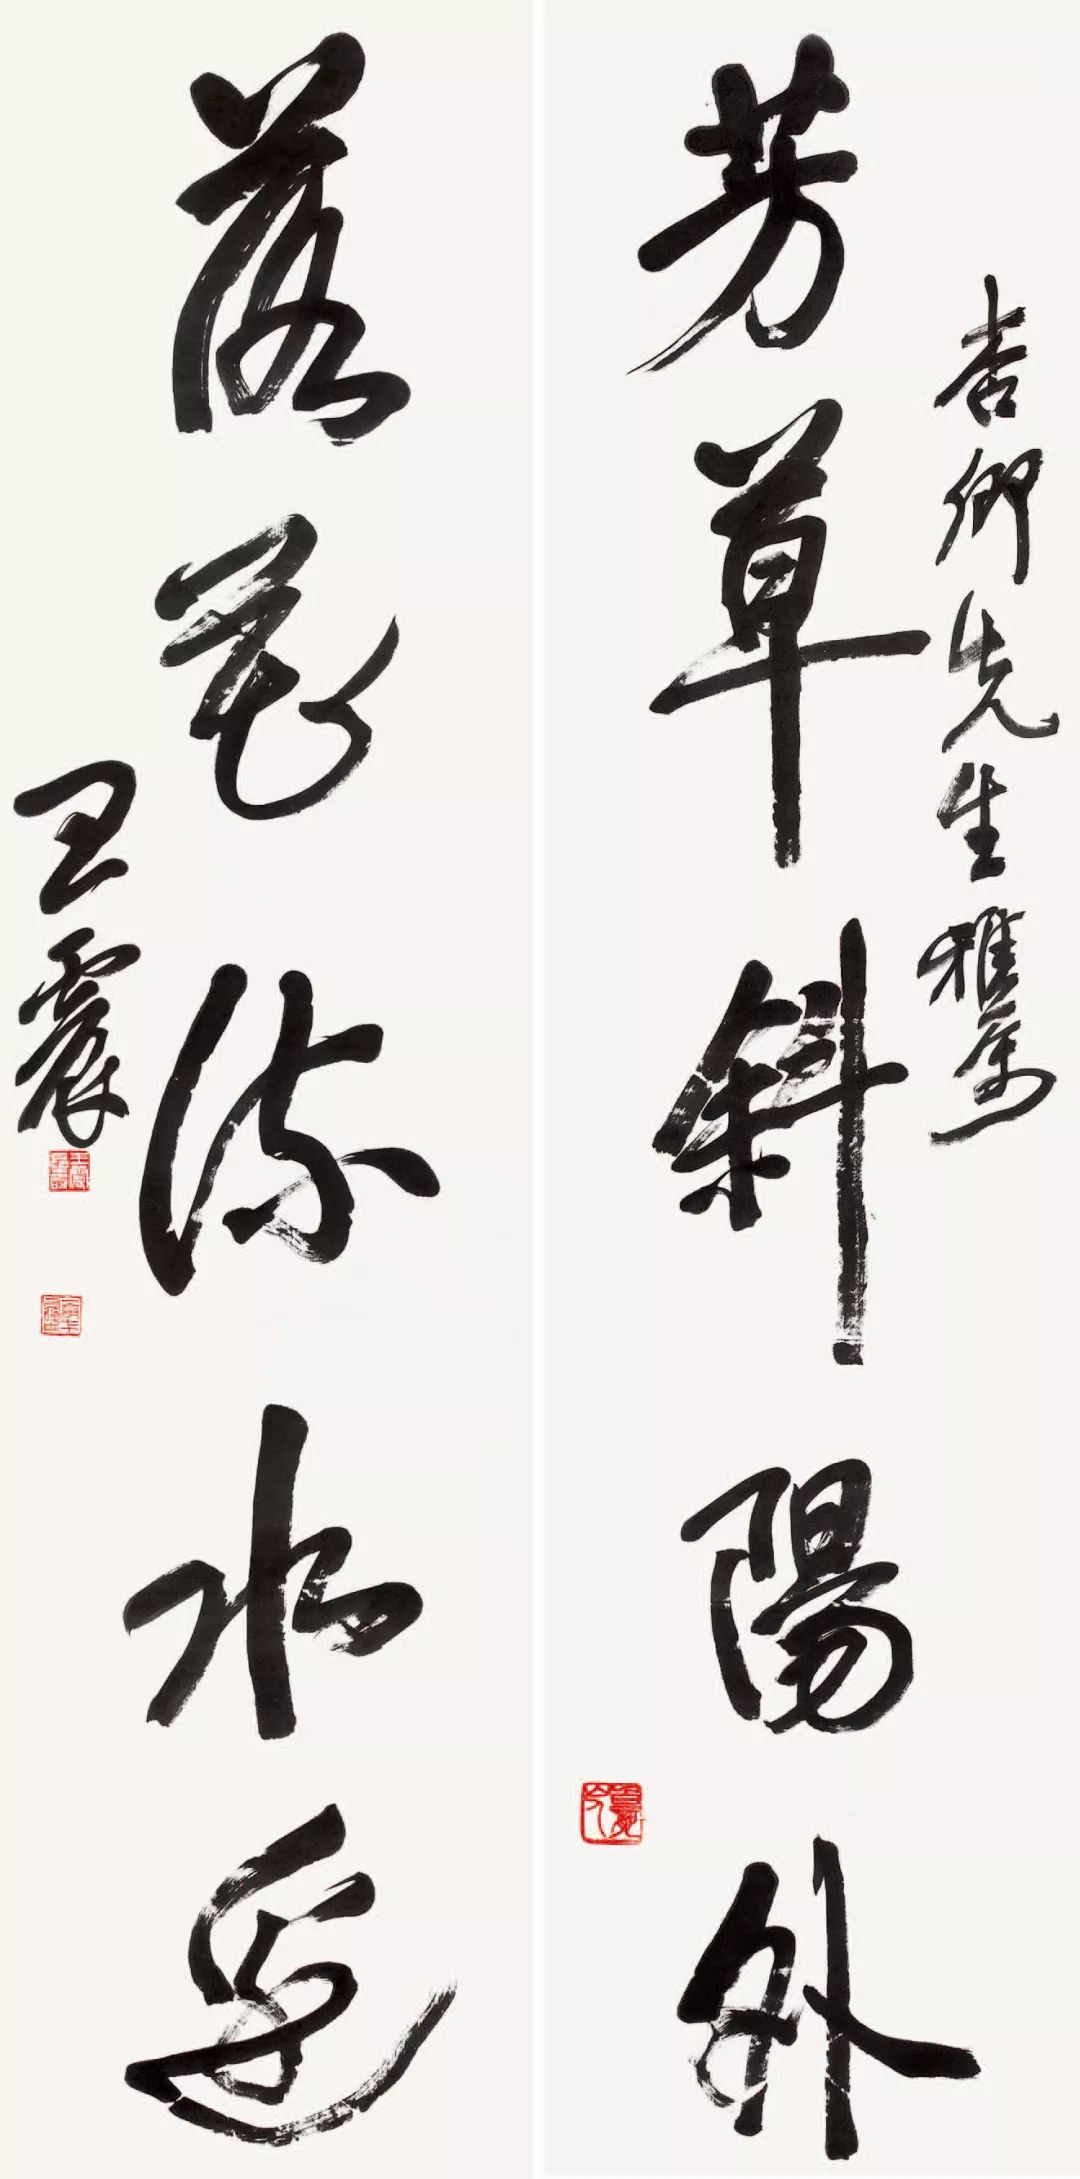 杏卿先生雅属
芳草斜陽外
落花流水邊
王震